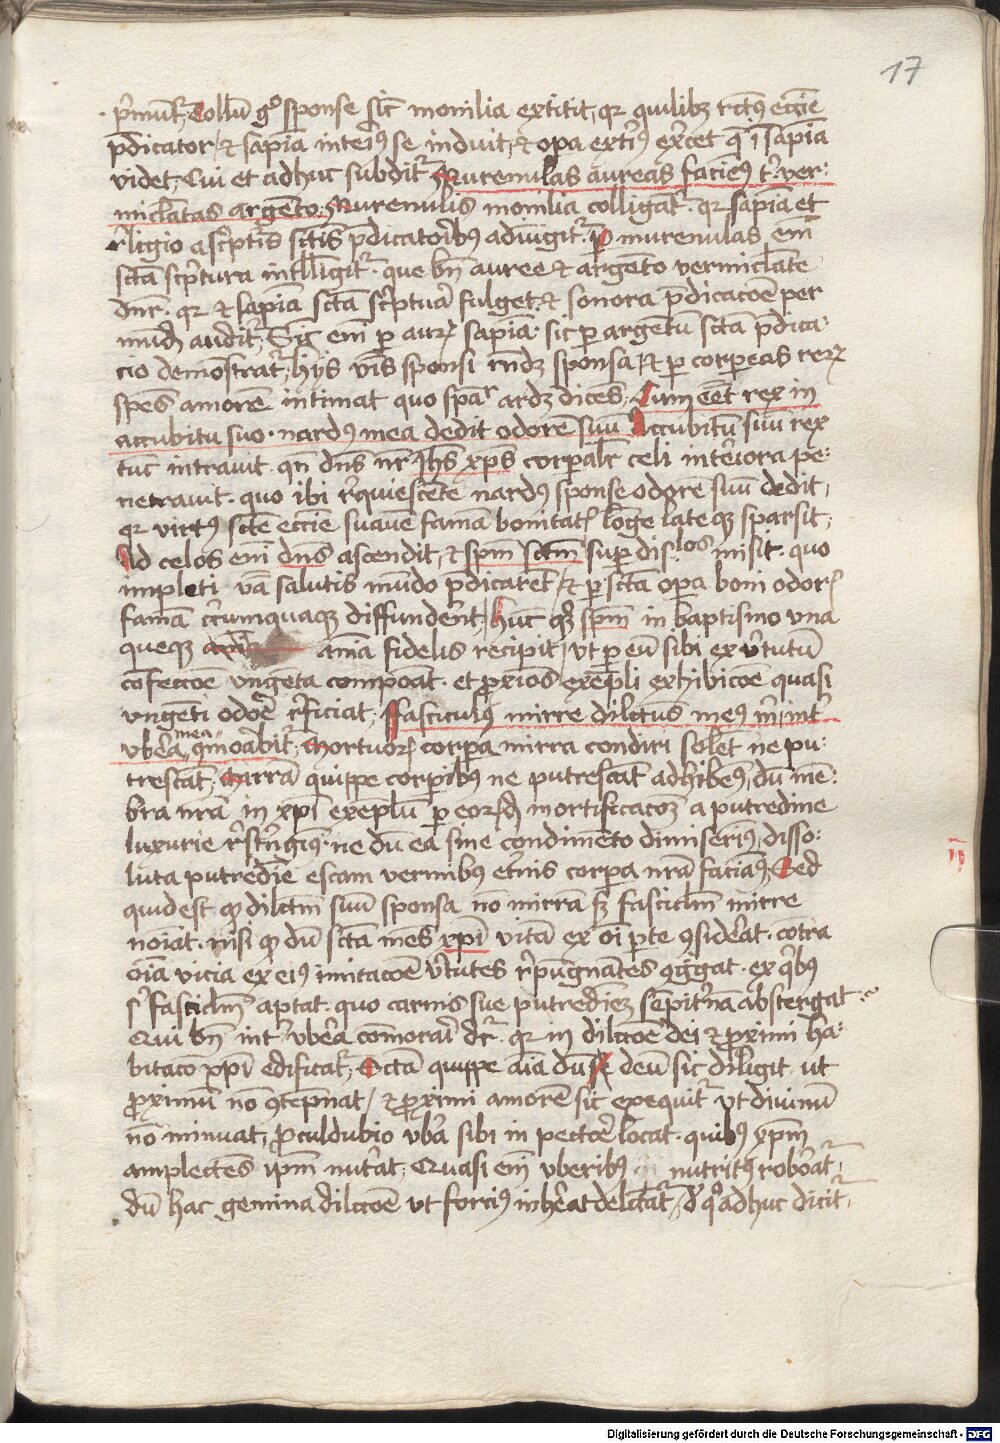 17
p̄munt᷑; Collū gͦ sponse sic̄ monilia extitit, qꝛ quilibꝫ rct̄ꝰ eccīe
p̄dicator / ⁊ sapīa interiꝰ se induit, ⁊ opa extiꝰ exꝰcet q̄ ī sapīa
videt; Cui et adhuc subdit᷑ Murenulas aureas faciēꝰ t᷑ ver:
miclatas argēto; Murenulis monilia colligāt᷑. qꝛ sapīa et
r̄ligio a sc̄ptis sctīs p̄dicatoribus adiūgit᷑. ꝑ murenulas em̄
sctā scp̄tura intll̄igit᷑. que bn̄ auree ⁊ argēto vermiclate
dnr̄. qꝛ ⁊ sapīa sctā sc̄ptura fulget, ⁊ sonora p̄dicacōe per
mūdū audit᷑; Sic em̄ ꝑ aurꝫ sapīa. sic ꝑ argētū sctā p̄dica
cio demōstrat᷑; hijs v̄is sponsi rn̄dꝫ sponsa, ⁊ ꝑ corpeas reꝝ
spēs amorē intimat quo spāl ardꝫ dicēs; Cum eēt rex in
accubitu suo. nardꝰ mea dedit odorē suū Accubitū suū rex
tūc intrauit. qn̄ dn̄s nr̄ Jhs̄ xp̄s corpalr̄ celi interiora pe:
netrauit. quo ibi r̄quiescēte nardꝰ sponse odorē suū dedit,
qꝛ virtꝰ sctē eccīe suauē famā bonitatꝭ lōge lateqꝫ sparsit;
Ad celos em̄ dn̄s ascendit, ⁊ sp̄m sctm̄ suꝑ dis.los misit. quo
impleti v̄a salutis mūdo p̄dicarēt / ⁊ ꝑ sctā opa boni odorꝭ
famā circumquaqꝫ diffunderēt / hūc qꝫ sp̄m in baptismo vna
queqꝫ aīa fidelis recipit, vt ꝑ eū sibi ex v̄tutū
cōfeccōe vngēta compoāt. et ꝓxīos exēpli exhibicōe quasi
vngēti odoē r̄ficiat; Fasciculꝰ mirre dilctūs meꝰ m̄, int᷑
vbēa mea qmoābit᷑; Mortuoꝝ corpa mirra condiri solēt ne pu:
trescāt; Mirrā quippe corpibus ne putrescāt adhibēꝰ, dū mē:
bra nrā in xp̄i exēplū ꝑ eorꝫ mortificacōꝫ a putredine
luxurie r̄stringiꝰ. ne dū ea sine condimēto dimiserīꝰ, disso:
luta putredīe escam vermibus et̄nis corpa nrā faciāꝰ; Sed
quid est qꝫ dilctm̄ suū sponsa nō mirrā sꝫ fascicl̄m mirre
noīat. nisi qꝫ dū sctā mēs xp̄i vitā ex oī ꝑte ꝯsiderat. cōtra
oīa vicia ex eiꝰ imitacōe v̄tutes r̄pugnātes ꝯgregat. ex qꝰbꝰ
sꝭ fascicl̄m aptat. quo carnis sue putredīeꝫ sēpit̄nā abstergat.
Qui bn̄ int᷑ vbēa cōmorari dr̄. qꝛ in dilccōe dei ⁊ ꝓximi ha:
bitacō xp̄i edificat᷑; Sctā quippe aīa dū deū sic diligit ut
ꝓximū nō ꝯtēpnat / ⁊ ꝓximi amorē sic exequit᷑ vt diuinū
nō minuat; ꝓculdubio vbēa sibi in pectoē locat. quibus xp̄m
amplectēs ip̄m nutriat; Quasi em̄ vberibus nutritꝰ roborat᷑,
dū hac gemina dilccōe ut forciꝰ inhereat delctāt᷑ / d̄ qͦ adhuc dicit᷑,
Digitalisierung gefördert durch die Deutsche Forschungsgemeinschaft - DFG